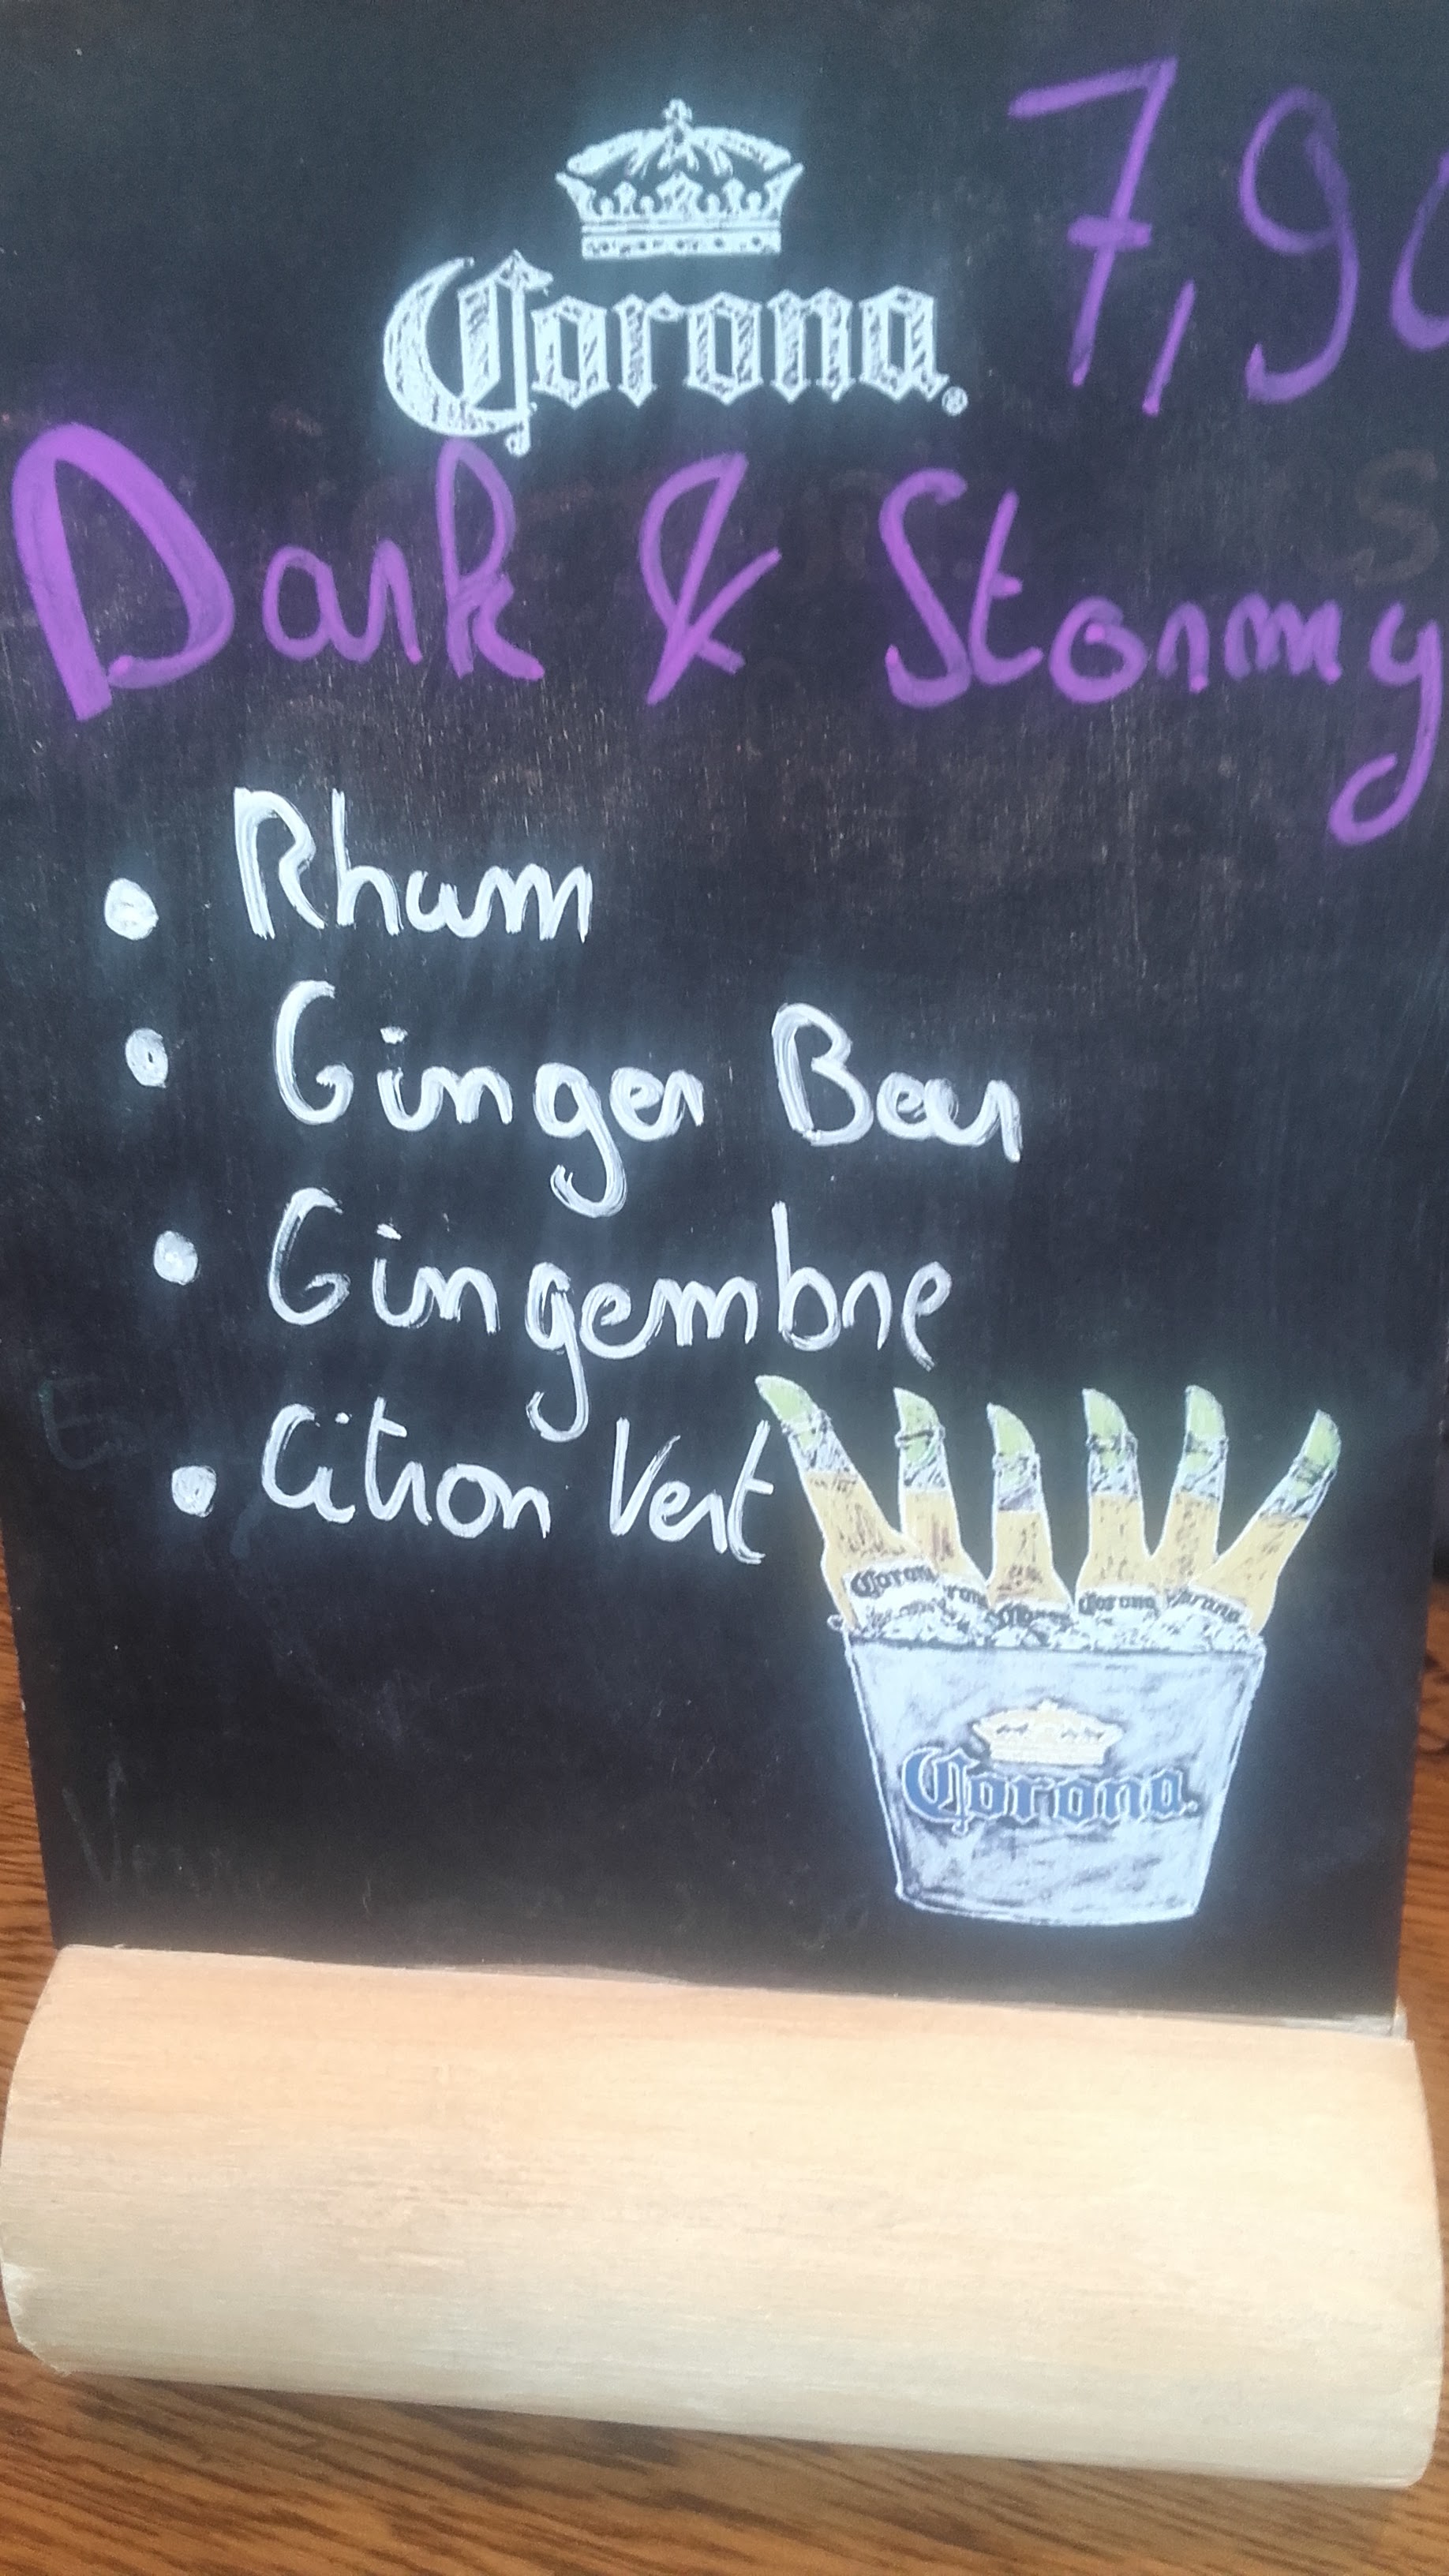 Corona
7,90
Dark & Stormy
• Rhum
• Ginger Beer
• Gingembre
• Citron Vert
Corona
Corona
Corona
Corona